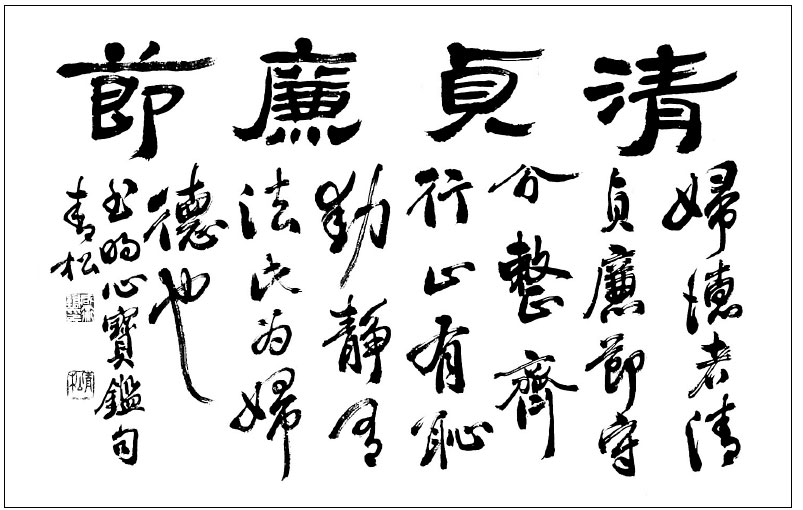 清貞廉節
婦德者清
貞廉節守
分整齊
行止有恥
動靜有
法此為婦
德也
書明心寶鑑句
青松
青松